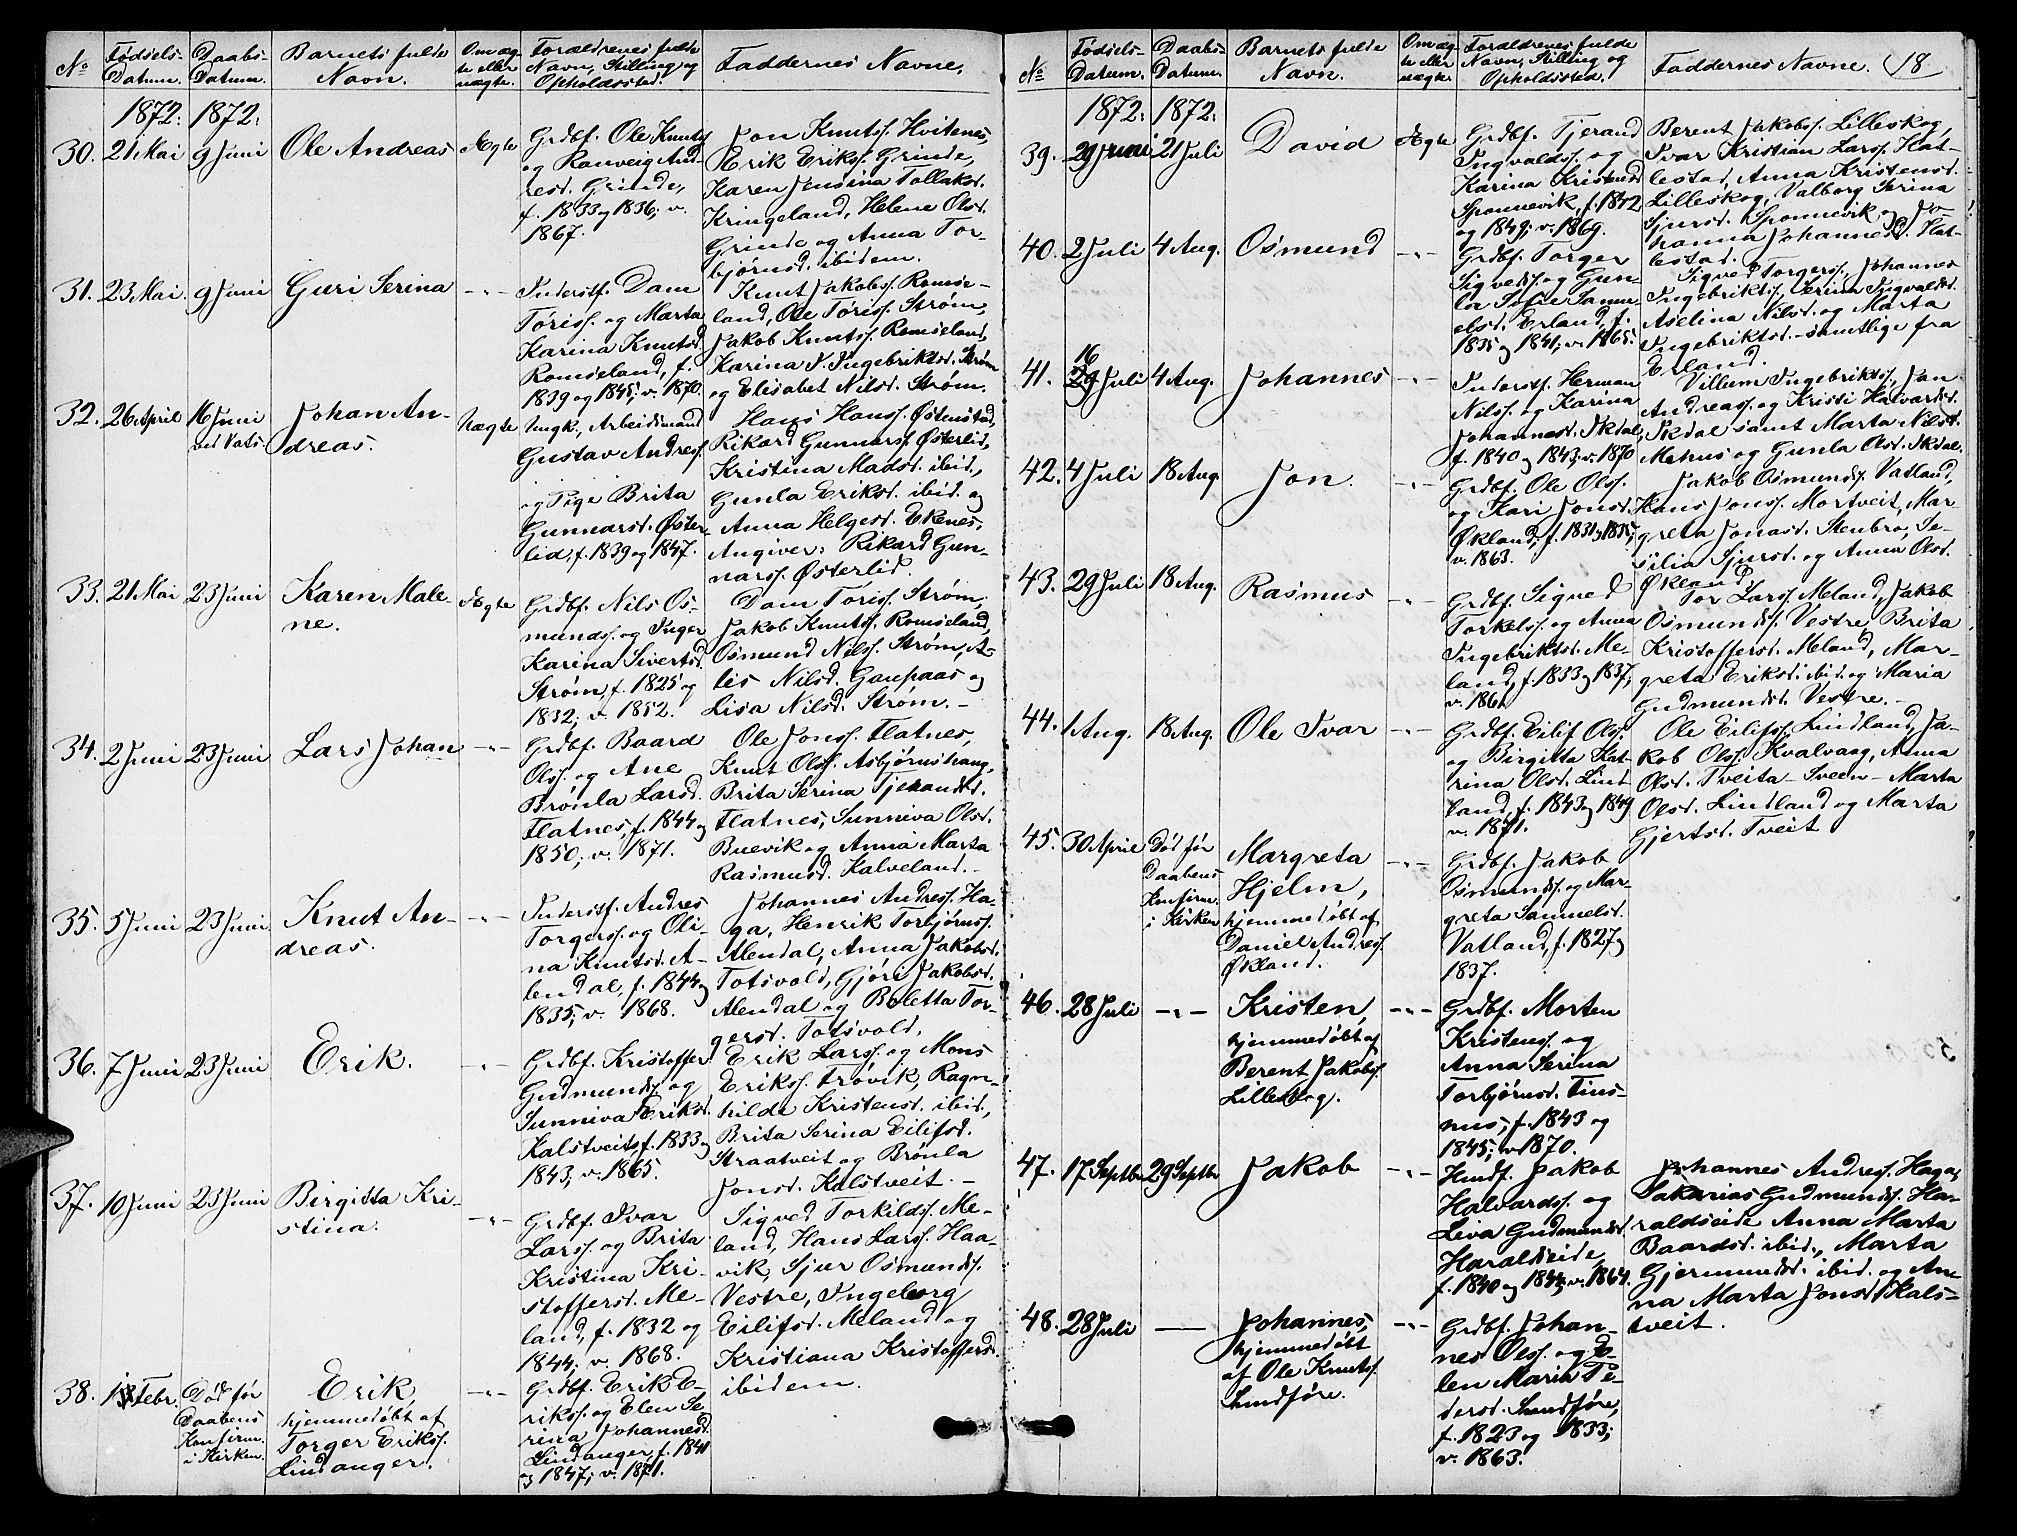 No
Fødsels-
Datum.
Daabs-
Datum.
Barnets fulde
Navn.
Om æg-
te eller
uægte.
Forældrenes fulde
Navn, Stilling og
Opholdssted.
Faddernes Navne.
1872: 1872:
30. 21 Mai 9 Juni Ole Andreas Ægte
Grdbf. Ole Knuts.
og Ranveig And-
resd. Grinde,
f. 1833 og 1836; v.
1867.
Jon Knutss. Hvitenes,
Erik Erikss. Grinde,
Karen Jensina Tollaksd.
Kringeland, Helene Olsd.
Grinde og Anna Tor-
bjørnsd. ibidem.
31. 23 Mai. 9 Juni Guri Serina -"-
Inderstf. Dam
Tøriss. og Marta
Karina Knutsd.
Romseland, f.
1839 og 1845; v. 1870.
Knut Jakobss. Romse-
land, Ole Tøriss. Strøm,
Jakob Knutss. Romseland,
Karina T. Ingebriktsd. Strøm
og Elisabet Nilsd. Strøm.
32. 26 April 16 Juni
ved Vats.
Johan An-
dreas.
Uægte
Ungk., Arbeidsmand
Gustav Andress.
og Pige Brita
Gunnarsd. Øster-
lid, f. 1839 og 1847.
Hans Hanss. Østenstad,
Rikard Gunnarss. Østerlid,
Kristina Madsd. ibid.,
Gunla Eriksd. ibid. og
Anna Helgesd. Ekenes,
Angiver: Rikard Gun-
narss. Østerlid.
33. 21 Mai 23 Juni Karen Male-
ne.
Ægte
Grdbf. Nils Os-
mundss. og Inger
Karina Sivertsd.
Strøm, f. 1825 og
1832; v. 1852.
Dam Toriss. Strøm,
Jakob Knutss. Romseland,
Osmund Nilss. Strøm, A-
lis Nilsd. Gaupaas og
Lisa Nilsd. Strøm. -
34. 2 Juni 23 Juni Lars Johan -"-
Grdbf. Baard
Olss. og Ane
Brønla Larsd.
Flatnes, f. 1844 og
1850; v. 1871.
Ole Jonss. Flatnes,
Knut Olss. Asbjørnshaug,
Brita Serina Tjerandsd.
Flatnes, Sunniva Olsd.
Buevik og Anna Marta
Rasmusd. Kalveland.
35. 5 Juni 23 Juni Knut An-
dreas.
-"-
Inderstf. Andres
Torgerss. og Oli-
na Knutsd. A-
lendal, f. 1844 og
1835; v. 1868.
Johannes Andress. Ha-
ga, Henrik Torbjørnss.
Alendal, Anna Jakobsd.
Totsvold, Gjøri Jakobsd.
Alendal og Boletta Tor-
gersd. Totsvold.
36. 7 Juni 23 Juni Erik. -"-
Grdbf. Kristoffer
Gudmundss. og
Sunniva Eriksd.
Kalstveit, f. 1833 og
1843; v. 1865
Erik Larss. og Mons
Erikss. Trøvik, Ragn-
hilde Kristensd. ibid.,
Brita Serina Eilifsd.
Straatveit og Brønla
Jonsd. Kalstveit. -
37. 10 Juni 23 Juni Birgitta Kri-
stina.
-"-
Grdbf. Ivar
Larss. og Brita
Kristina Kri-
stoffersd. Me-
land, f. 1832 og
1844; v. 1868.
Sigved Torkilds. Me-
land, Hans Larss. Haa-
vik, Sjur Osmundss.
Vestre, Ingeborg
Eilifsd. Meland og
Kristiana Kristoffersd.
ibidem.
38. Febr. Død før
Daabens
Konfirm.
i Kirken.
Erik,
hjemmedøbt af
Torger Erikss.
Lindanger.
-"-
Grdbf. Erik E-
rikss. og Elen Se-
rina Johannesd.
Lindanger, f. 1841
og 1847; v. 1871.
No
Fødsels-
Datum.
Daabs-
Datum.
Barnets fulde
Navn.
Om æg-
te eller
uægte.
Forældrenes fulde
Navn, Stilling og
Opholdssted.
Faddernes Navne. 18
1872: 1872:
39. 29 Juni 21 Juli David Ægte
Grdbf. Tjerand
Ingvaldss. og
Karina Kristensd.
Sponnevik, f. 1842
og 1849; v. 1869.
Berent Jakobss. Lilleskog,
Ivar Kristian Larss. Hat-
lestad, Anna Kristensd.
Lilleskog, Valborg Serina
Sjursd. Sponnevik og Jo-
hanna Johannesd. Hat-
lestad.
40. 2 Juli 4 Aug. Osmund -"-
Grdbf. Torger
Sigvedss. og Gun-
la Sofie Samu-
elsd. Erland, f.
1835 og 1841; v. 1865.
Sigved Torgerss., Johannes
Ingebriktss., Serina Ingvaldsd.
Aselina Nilsd. og Marta
Ingebriktsd. - samtlige fra
Erland.
41. 16
29 Juli 4 Aug. Johannes -"-
Inderstf. Herman
Nilss. og Karina
Johannesd. Ikdal,
f. 1840 og 1843; v. 1870
Villum Ingebriktss., Jan
Andreass. og Kristi Halvardsd.
Ikdal samt Marta Nilsd.
Mehus og Gunla Olsd. Ikdal.
42. 4 Juli 18 Aug. Jon. -"-
Grdbf. Ole Olss.
og Kari Jonsd.
Økland, f. 1831 og 1835;
v. 1863.
Jakob Osmundss. Vatland,
Hans Jonss. Mortveit, Mar-
greta Jonasd. Stenbro, Se-
silia Sjursd. og Anna Olsd.
Økland.
43. 29 Juli 18 Aug. Rasmus -"-
Grdbf. Sigved
Torkelss. og Anna
Ingebriktsd. Me-
land, f. 1833 og 1837;
v. 1861.
Tor Larss. Meland, Jakob
Osmundss. Vestre, Brita
Kristoffersd. Meland, Mar-
greta Eriksd. ibid. og Maria
Gudmundsd. Vestre. -
44. 1 Aug. 18 Aug. Ole Ivar -"-
Grdbf. Eilif Olss.
og Birgitta Kat-
rina Olsd. Lind-
land, f. 1843 og 1849
v. 1871.
Ole Eilifss. Lindland, Ja-
kob Olss. Kvalvaag, Anna
Olsd. Tveita - Sveen - Marta
Olsd. Lindland og Marta
Gjertsd. Tveit
45. 30 April Død før
Daabens
Konfirm.
i Kirken
Margreta
Hjelm,
hjemmedøbt af
Daniel Andress.
Økland.
-"-
Grdbf. Jakob
Osmundss. og Mar-
greta Samuelsd.
Vatland, f. 1827 og
1837.
46. 28 Juli -"- Kristen,
hjemmedøbt af
Berent Jakobss.
Lilleskog.
-"-
Grdbf. Morten
Kristenss. og
Anna Serina
Torbjørnsd. Tins-
nus; f. 1843 og
1845; v. 1870.
47. 17 Septbr 29 Septbr Jakob -"-
Husf. Jakob
Halvardss. og
Leva Gudmundsd.
Haraldseide,
f. 1840 og 1844; v. 1864.
Johannes Andress. Haga,
Sakarias Gudmundss. Ha-
raldseide, Anna Marta
Baardsd. ibid., Marta
Gjermundsd. ibid. og An-
na Marta Jonsd. Kals-
tveit.
48. 28 Juli — Johannes,
hjemmedøbt
af Ole Knutss.
Sundføre.
-"-
Grdbf. Johan-
nes Olss. og E-
len Maria Pe-
dersd. Sundføre,
f. 1823 og 1833;
v. 1863.